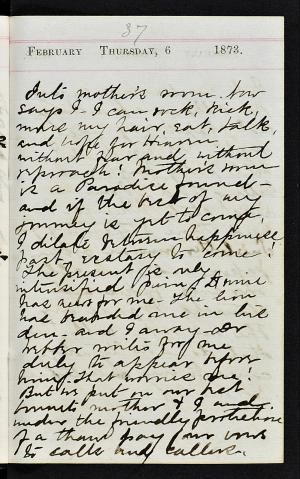 37
FEBRUARY THURSDAY, 6 1873.
Into mother's room. Now
says I - I can rock, kick,
muss my hair, eat, talk,
and hope for Heaven
without fear and without
reproach! Mother's room
is a Paradise found -
and if the best of my
journey is yet to come,
I dilate between happiness
past, ecstasy to come!
The present is only
intensified pain. Dr.
has news for me - The lion
has bearded me in his
den - and I away - Dr
writes for me
duly to appear before
him. That worries me!
But we put on our best
bonnets mother & I and
under the friendly protection
of a thaw pay our vows
to calls and callers.